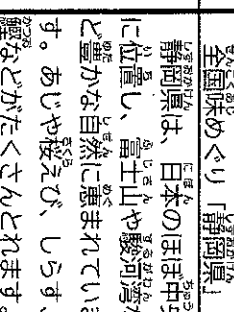 全国味めぐり「静岡県」
静岡県は、日本のほぼ中
に位置し、富士山や駿河湾
ど豊かな自然に恵まれてい
す。あじや桜えび、しらす、
鰹などがたくさんとれます。